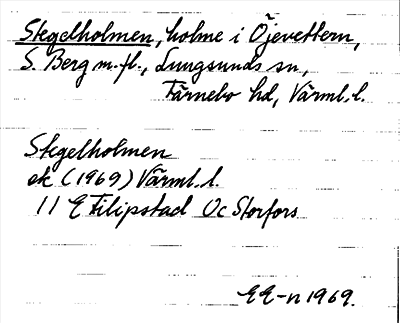 Stegelholmen, holme i Öjevettern,
S. Berg m.fl., Lungsunds sn,
Färnebo hd, Värml. l.
Stegelholmen
ek (1969) Värml. l.
11 E Filipstad Öc Storfors
EE-n 1969.